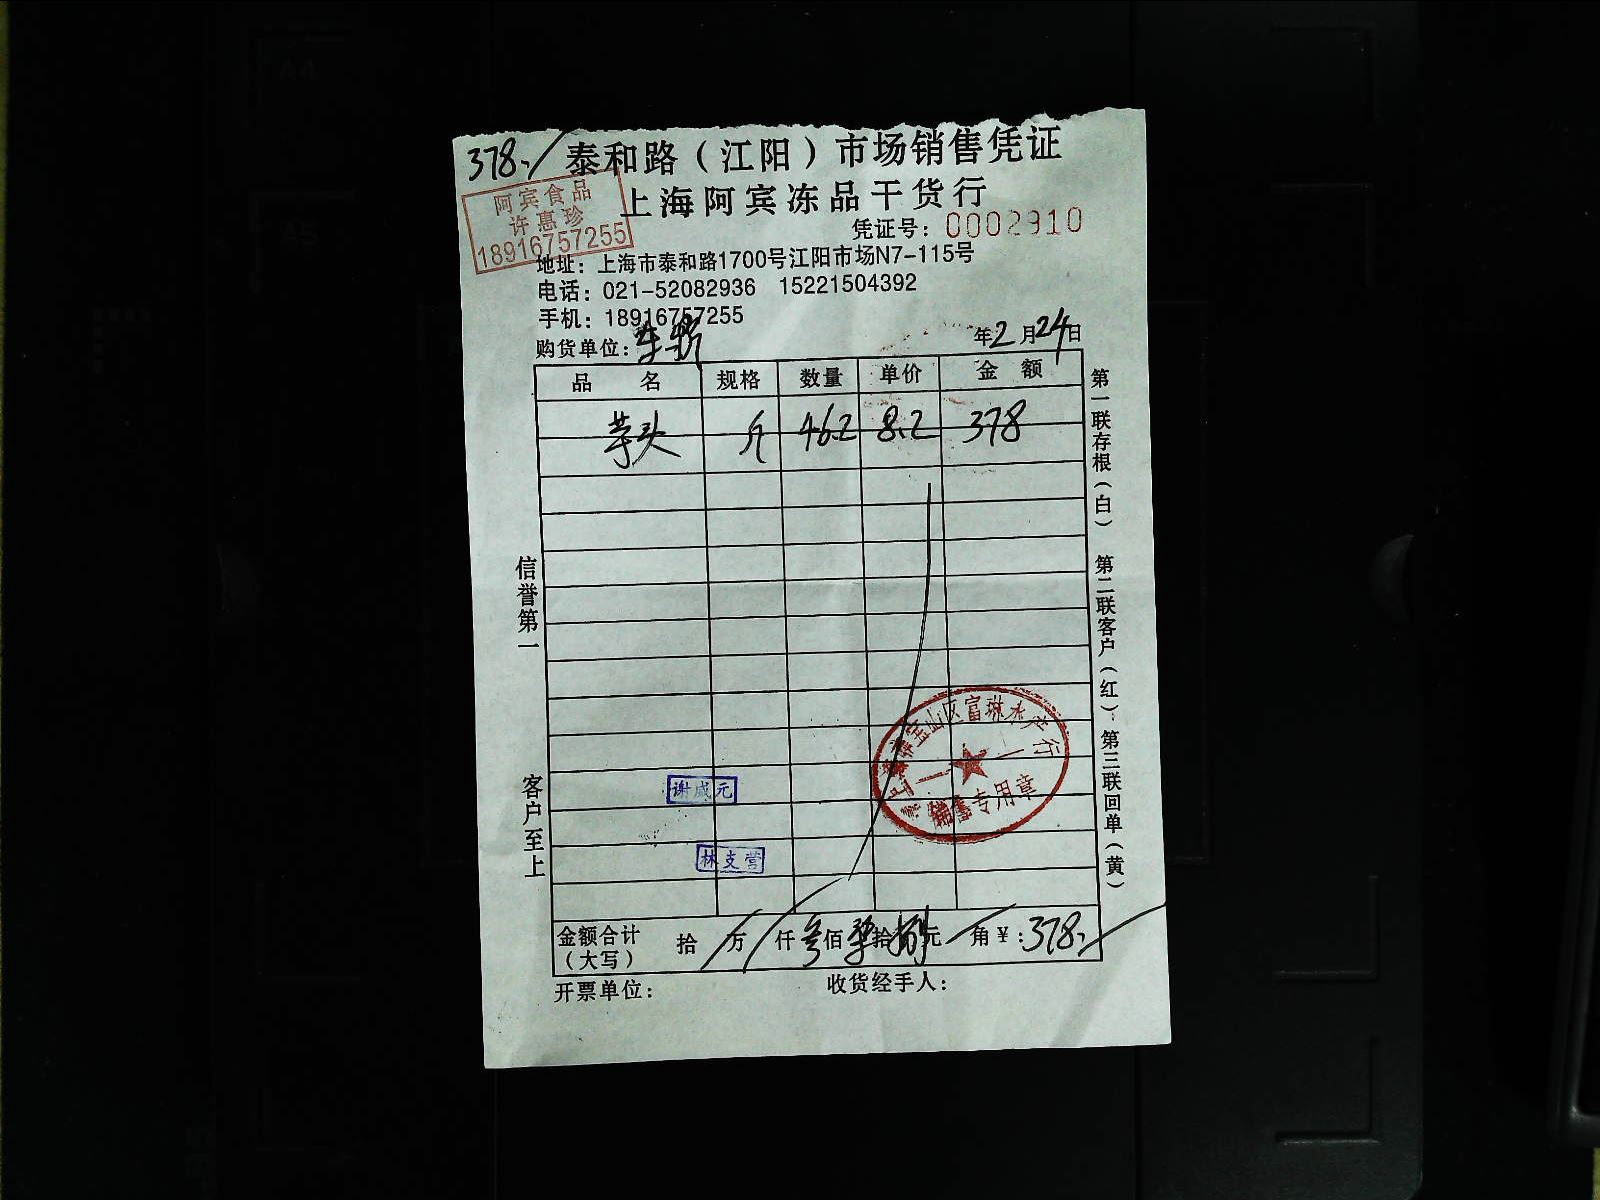 378,
泰和路（江阳）市场销售凭证
上海阿宾冻品干货行
阿宾食品
许惠珍
18916757255
凭证号：0002910
地址：上海市泰和路1700号江阳市场N7-115号
电话：021-52082936 15221504392
手机：18916757255
购货单位： 年2月24日
品名 规格 数量 单价 金额
芋头 斤 46.2 8.2 378
第一联存根（白） 第二联客户（红）；第三联回单（黄）
信誉第一
客户至上
宝山区富琪水产行
销售专用章
谢成元
林支营
金额合计（大写） 拾 万 仟 叁佰柒拾捌元 角 ¥：378,
开票单位： 收货经手人：